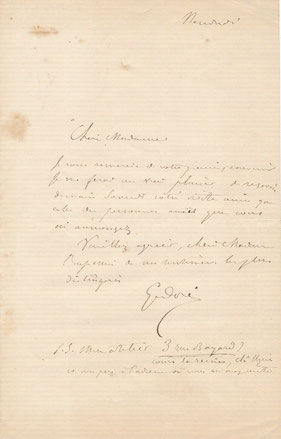 Vendredi
Chère Madame
Je vous remercie de votre gracieux souvenir
Je me ferai un vrai plaisir de recevoir
demain Samedi votre visite ainsi que
celle des personnes amies que vous
m'annoncez.
Veuillez agréer, chère Madame
l'expression de mes sentiments les plus
distingués
G. Doré
P.S. Mon atelier 3 rue Bayard
cours la reine,
et non pas